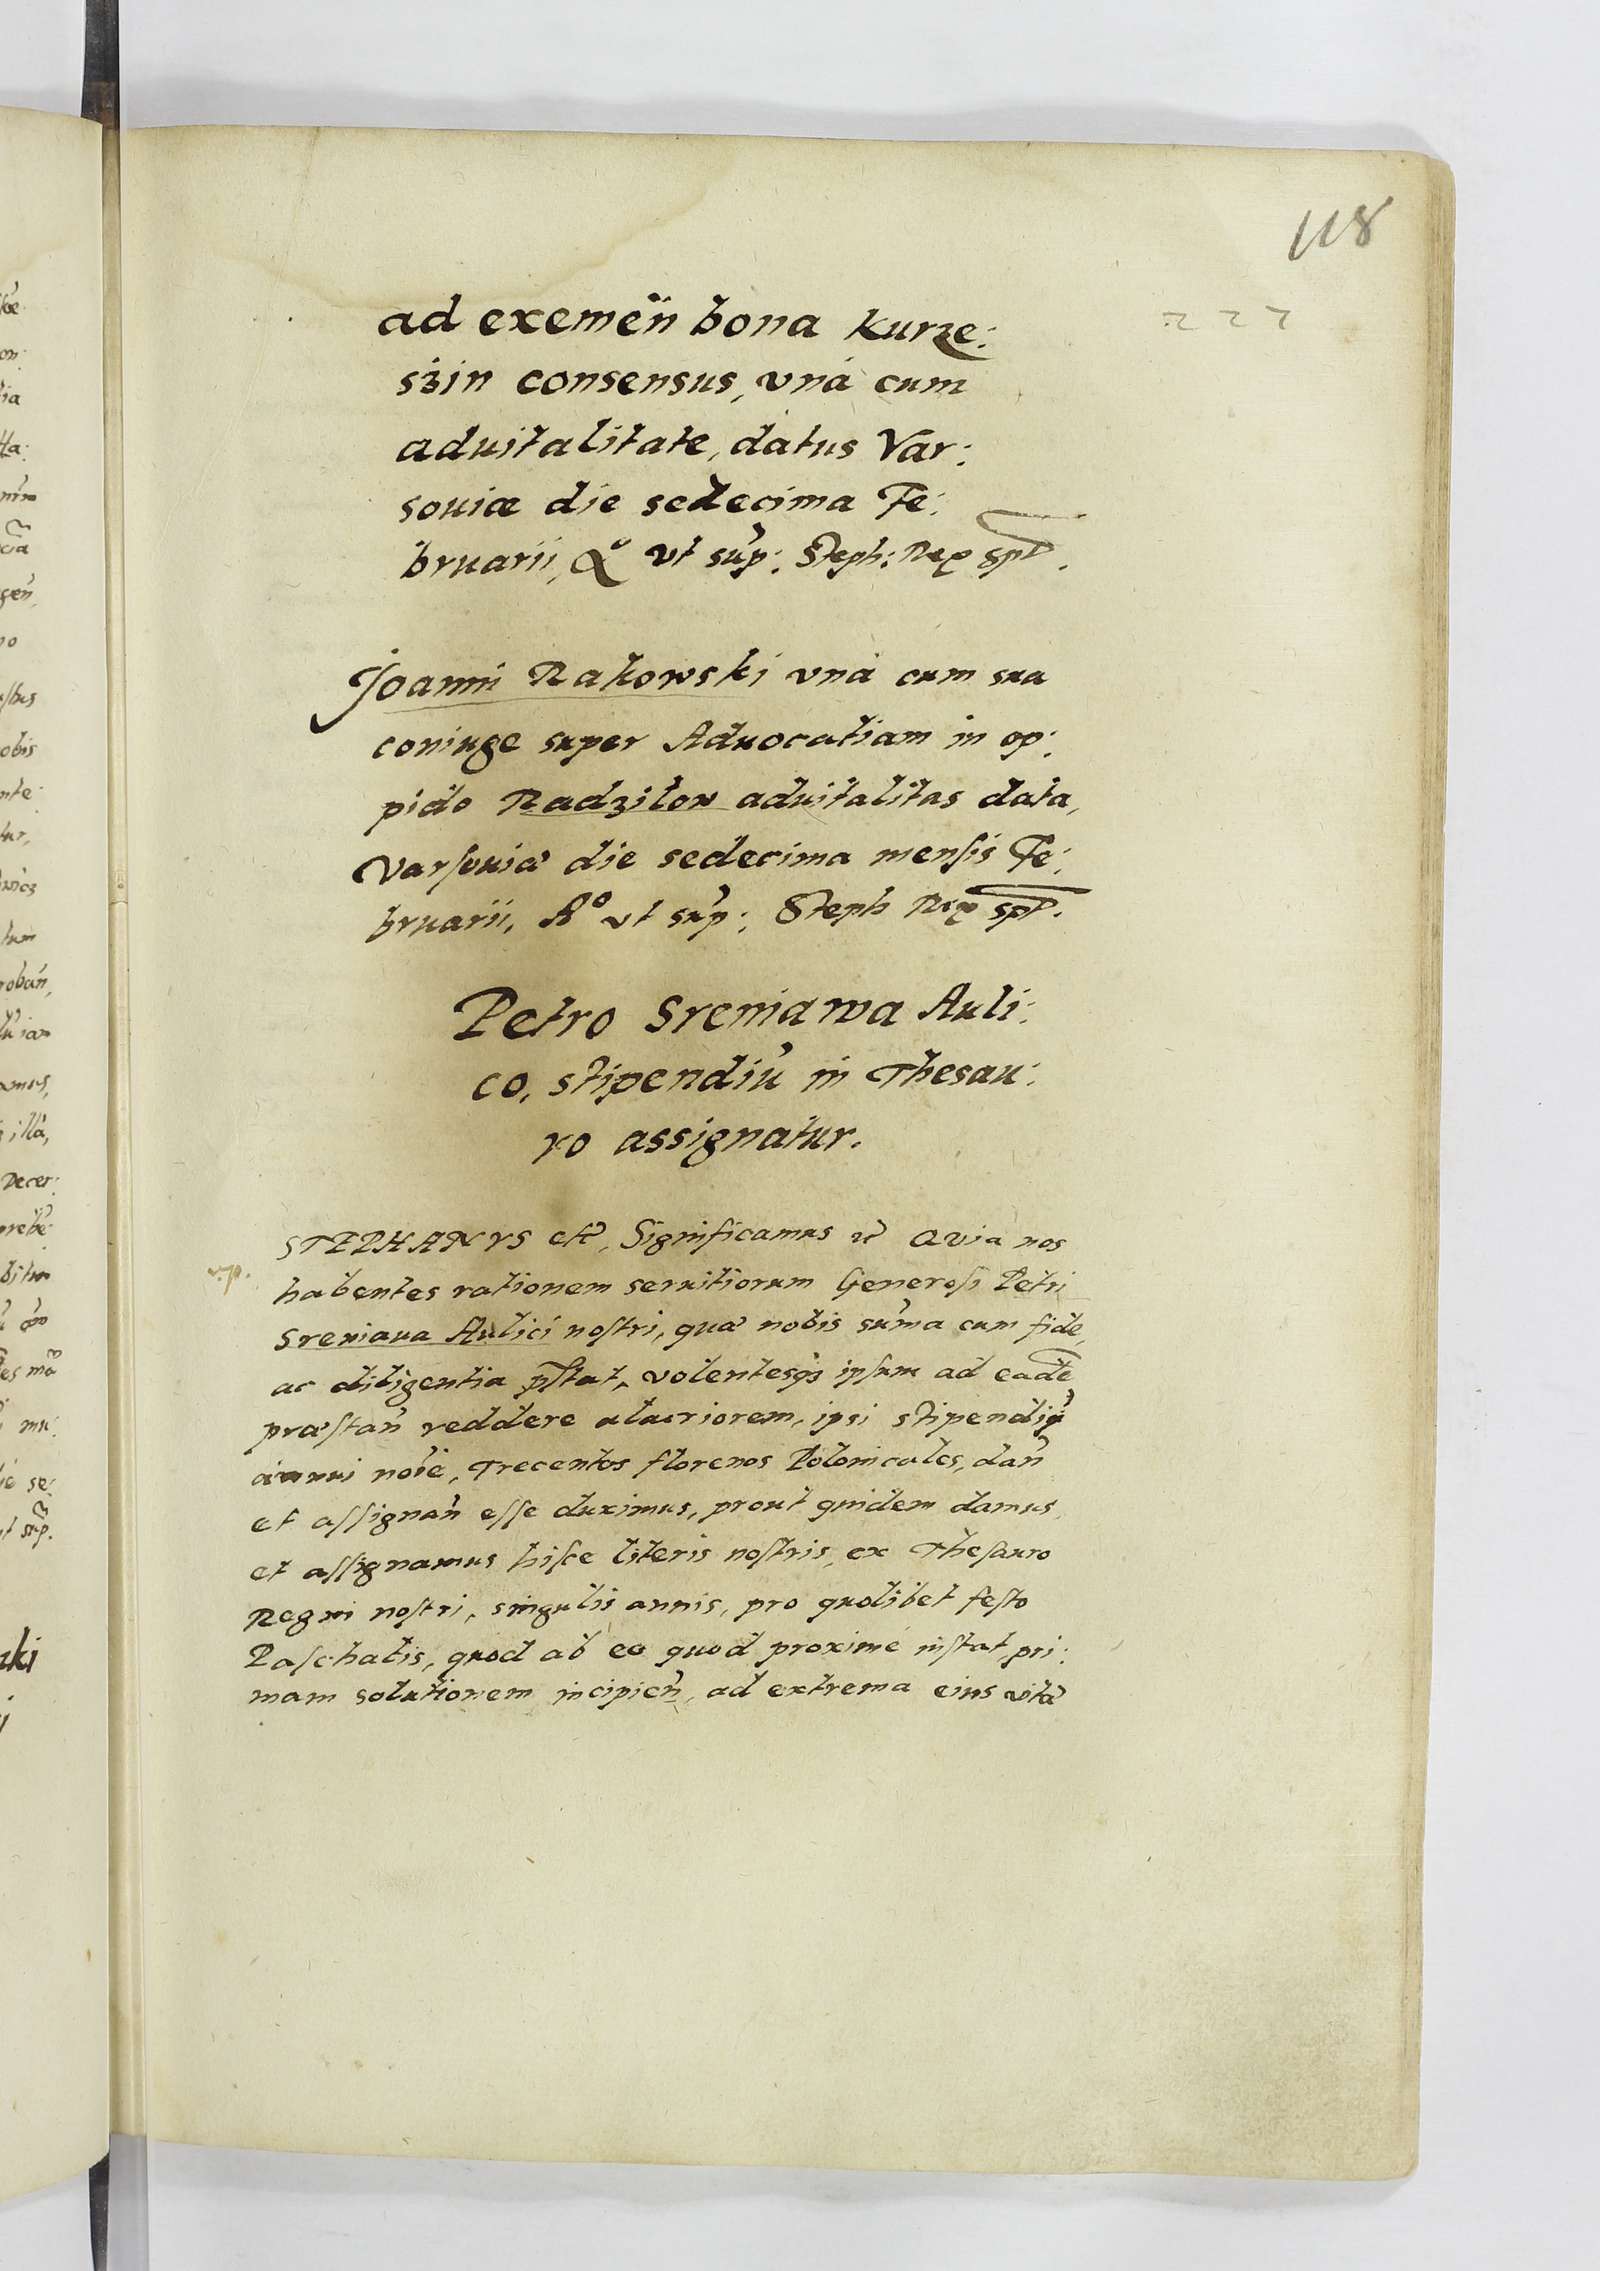 118
ad exemeñ bona Kurze:
szin consensus, vnà cum
aduitalitate, datus Var:
souiæ die sedecima Fe:
bruarii, Aº vt sup: Steph: Rex sptt.
Joanni Rakowski vnà cum sua
coniuge super Aduocatiam in op:
pido Radzilow aduitalitas data,
Varsouiæ die sedecima mensis Fe:
bruarii, Aº vt sup: Steph Rex sptt.
Petro Sreniawa Auli:
co, stipendiu in Thesau:
ro assignatur.
STEPHANVS etc, Significamus Quia nos
habentes rationem seruitiorum Generosi Petri
Sreniaua Aulici nostri, quæ nobis suma cum fide,
ac diligentia pstat, volentesq ipsum ad eade
præstañ reddere alacriorem, ipsi stipendiu
annui noie, Trecentos florenos Polonicales, dañ
et assignañ esse duximus, prout quidem damus
et assignamus hisce literis nostris, ex Thesauro
Regni nostri, singulis annis, pro quolibet festo
Paschatis, quod ab eo quod proximè instat, pri:
mam solutionem incipień, ad extrema eius vitæ